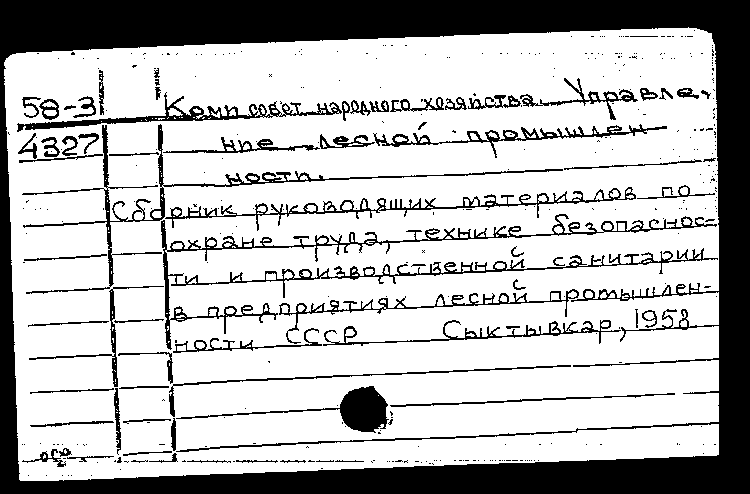 58-3 Коми совет народного хозяйства. Управле-
4327 ние лесной промышлен
ности.
Сборник руководящих материалов по
охране труда, технике безопаснос-
ти и производственной санитарии
в предприятиях лесной промышлен-
ности СССР Сыктывкар, 1958